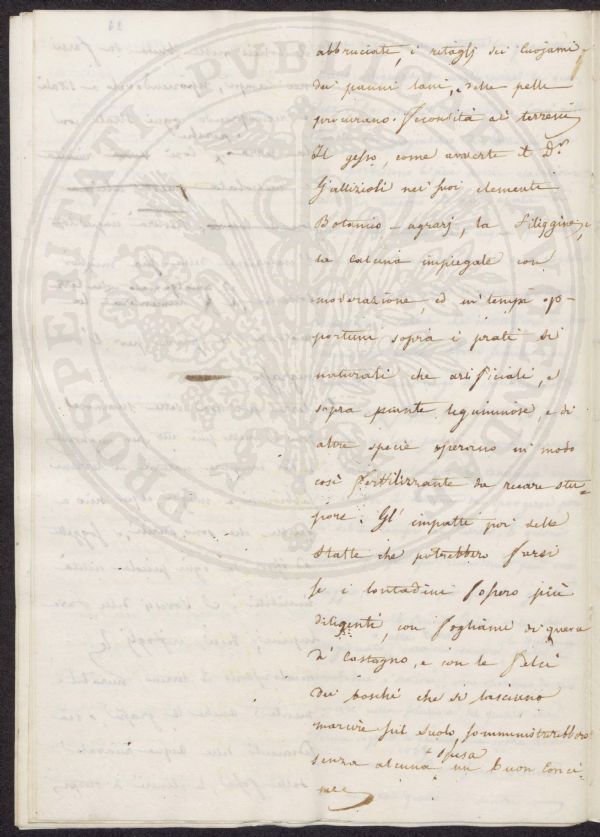 abbruciate, i ritaglj dei cuojami,
dei panni lani, e delle pelli
procurano fecondità ai terreni
Il gesso, come avverte il D.r
Gallizioli nei suoi elementi
Botanico-agrarj, la filiggine,
la calcina impiegate con
moderazione, ed in tempi op-
portuni sopra i prati si
naturali che artificiali, e
sopra piante leguminose, e di
altre specie operano in modo
così fertilizzante da recare stu-
pore. Gl' impatti poi delle
stalle che potrebbero farsi
se i contadini fossero più
diligenti, con fogliami di querce
di Castagno, e con le felci
dei boschi che si lasciano
marcire sul suolo, somministrerebbero
senza alcuna spesa un buon conci-
me
PROSPERITATI PUBLICAE AUGENDAE